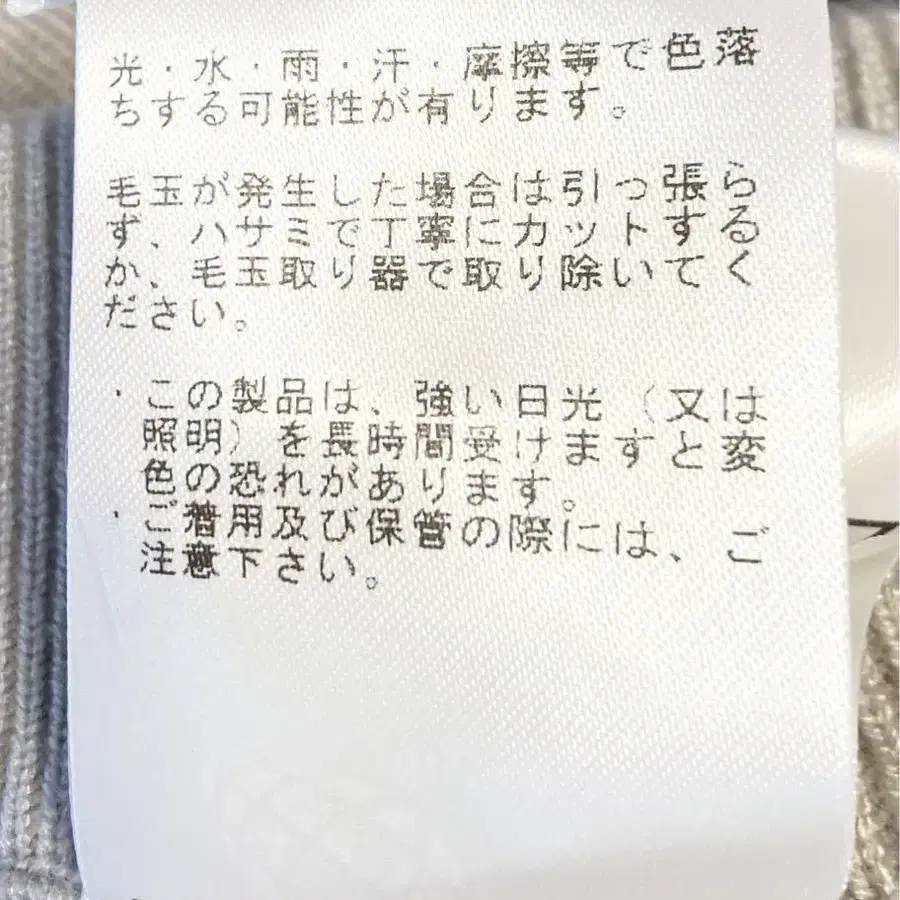 光・水・雨・汗・摩擦等で色落
ちする可能性が有ります。
毛玉が発生した場合は引っ張ら
ず、ハサミで丁寧にカットする
か、毛玉取り器で取り除いてく
ださい。
・この製品は、強い日光(又は
照明)を長時間受けますと変
色の恐れがあります。
・ご着用及び保管の際には、ご
注意下さい。